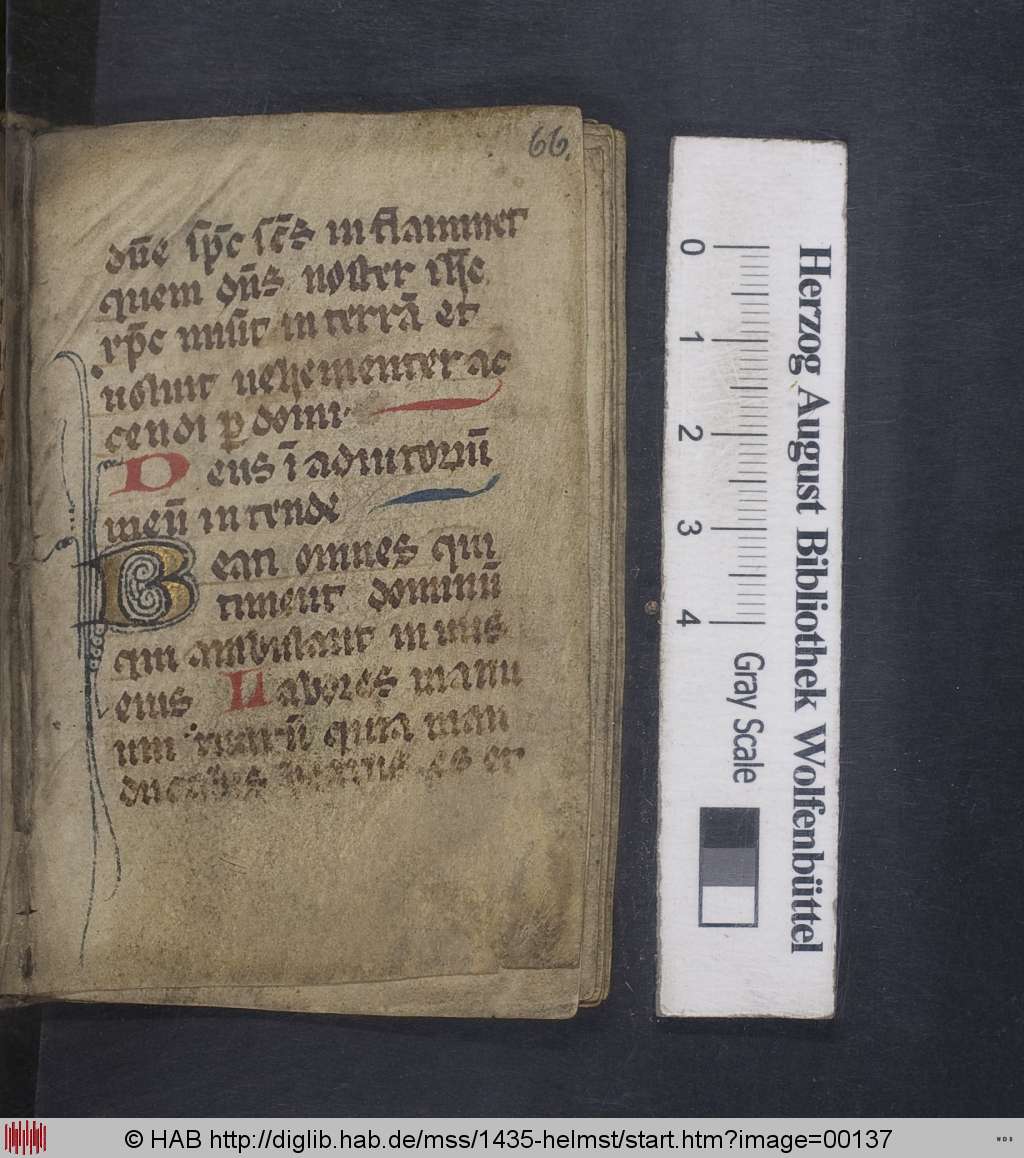 66.
dn̄e sp̄c sc̄s inflammet
quem dn̄s noster ihc̄
xp̄c misit in terrā et
uoluit uehementer ac
cendi ꝑ domi·
Deus ī adiutoriū
meū intende
Beati omnes qui
timent dominū
qui ambulant in uiis
eius Labores manu
um tuarū quia man
ducabis beatus es et
0
1
2
3
4
Gray Scale
Herzog August Bibliothek Wolfenbüttel
© HAB http://diglib.hab.de/mss/1435-helmst/start.htm?image=00137